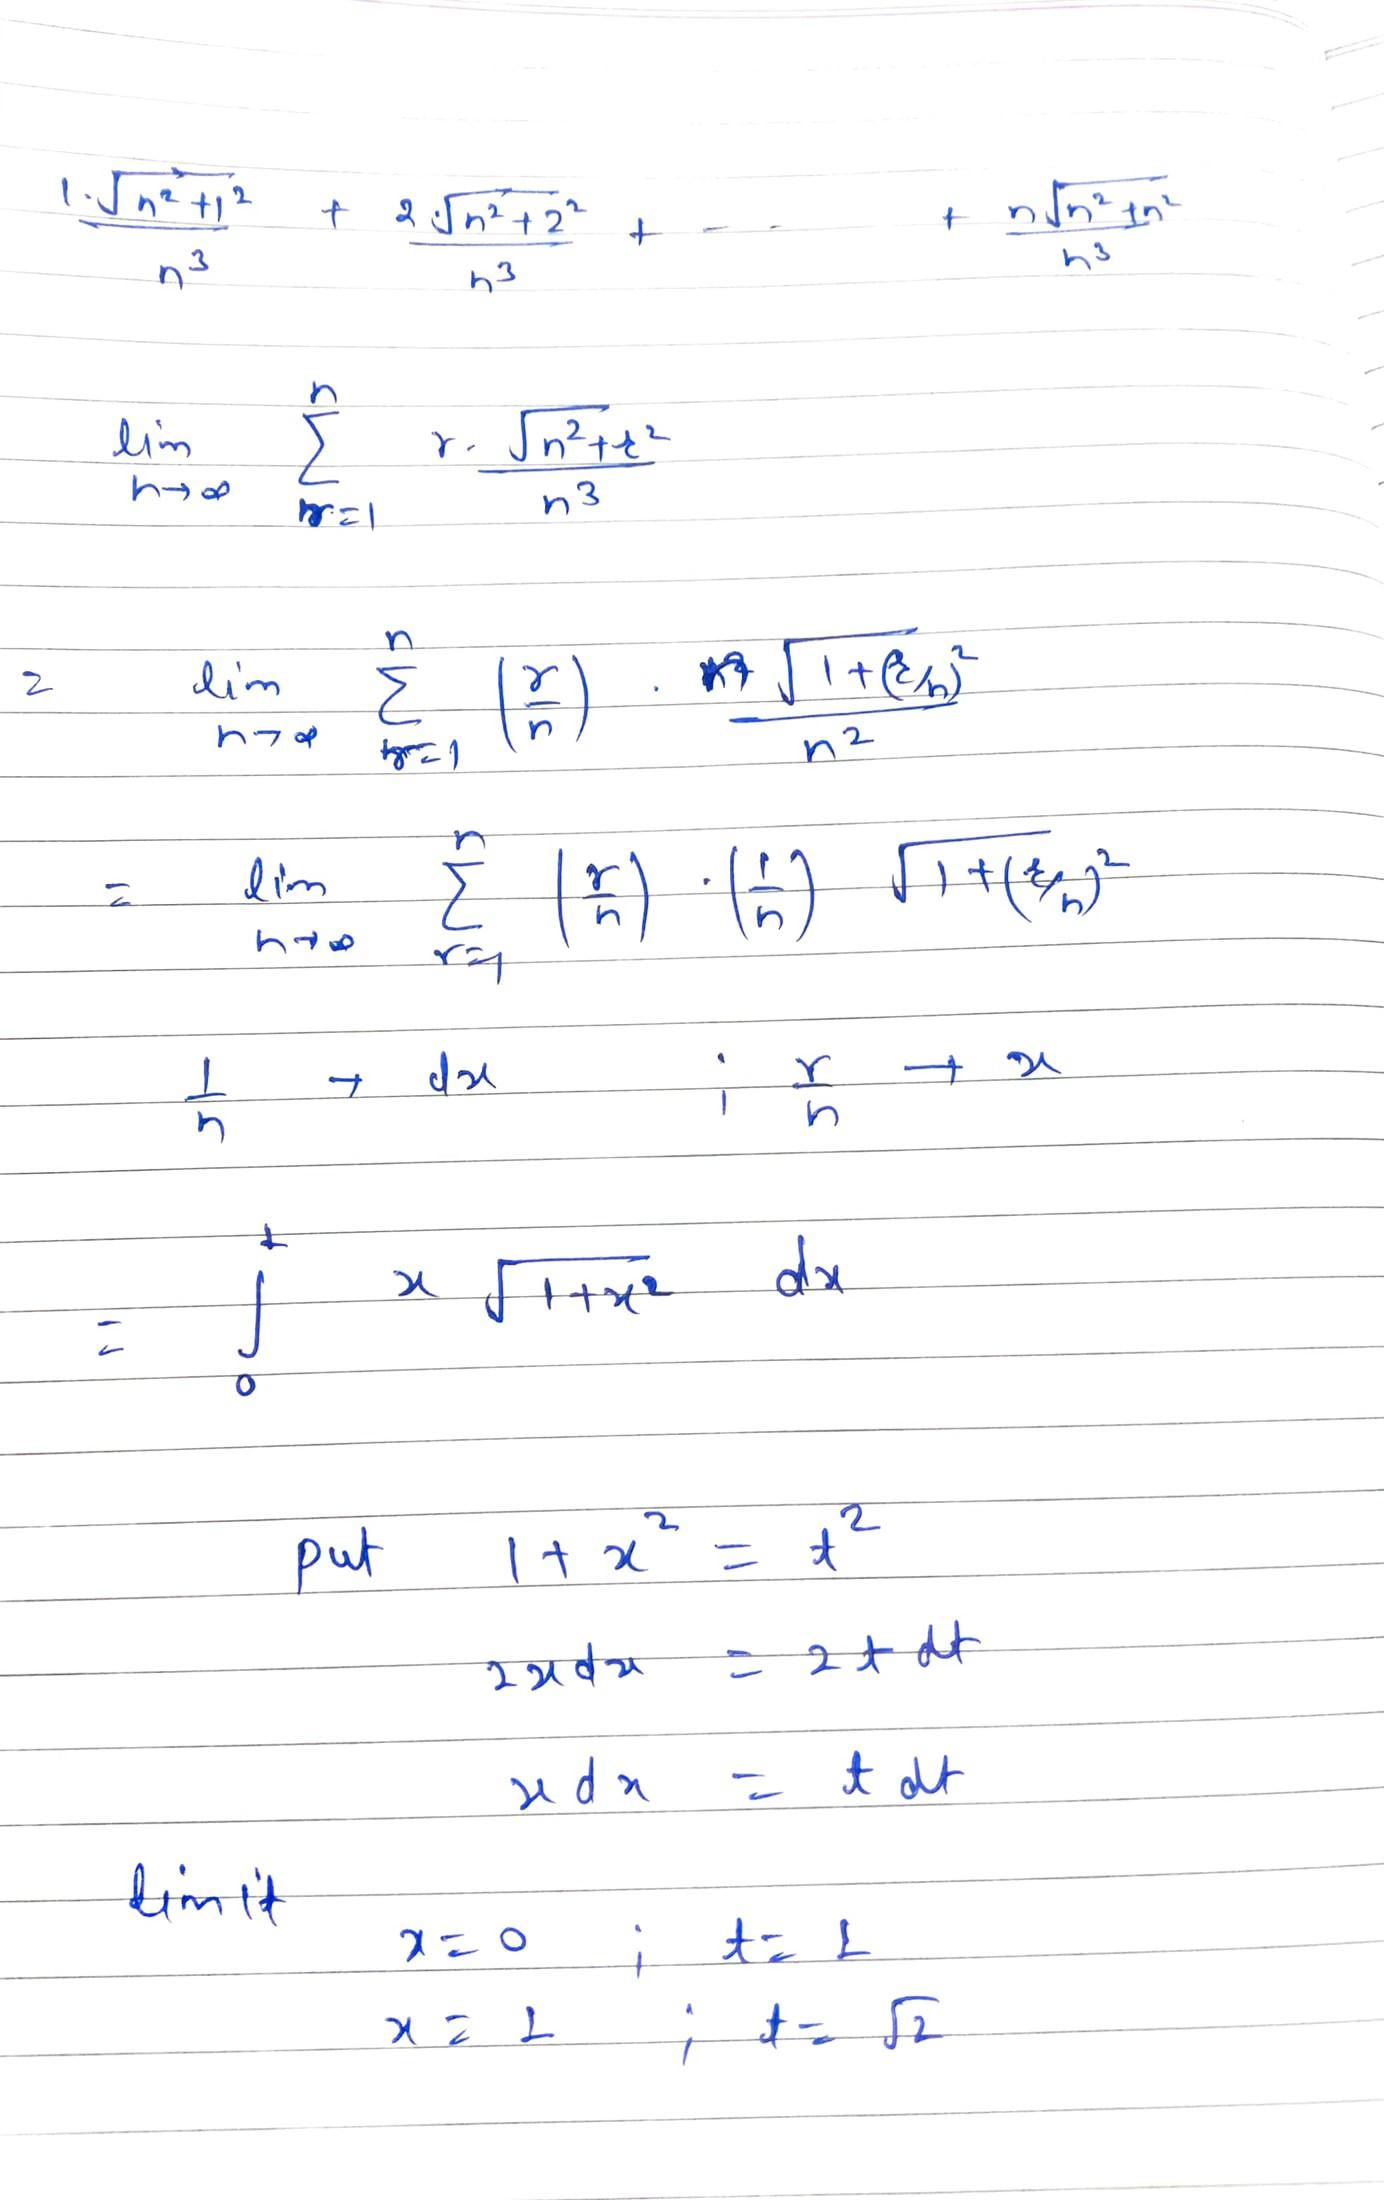 1.√n²+1² / n³ + 2.√n²+2² / n³ + - - - + n√n²+n² / n³
lim n→∞ Σ r=1 n r. √n²+r² / n³
= lim n→∞ Σ r=1 n (r/n) . √1+(r/n)² / n²
= lim n→∞ Σ r=1 n (r/n) . (1/n) √1+(r/n)²
1/n → dx ; r/n → x
= ∫ 0 1 x √1+x² dx
put 1+x² = t²
2xdx = 2t dt
x dx = t dt
limit
x=0 ; t=1
x=1 ; t=√2